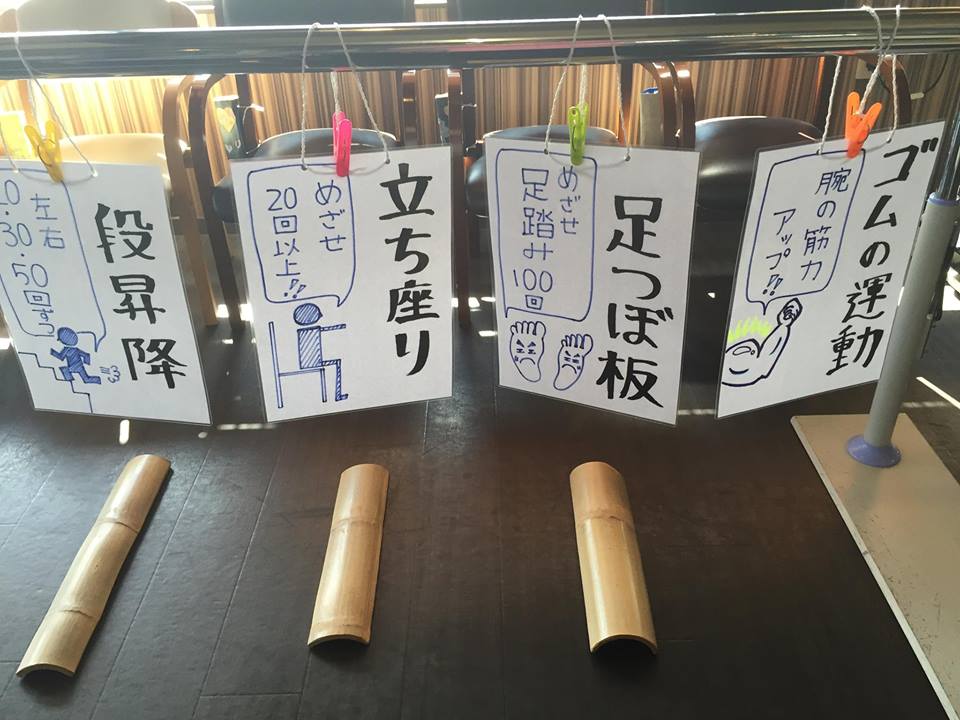 段昇降
左右
10・30・50回ずつ
立ち座り
めざせ
20回以上!!
足つぼ板
めざせ
足踏み
100回
ゴムの運動
腕の筋力
アップ!!